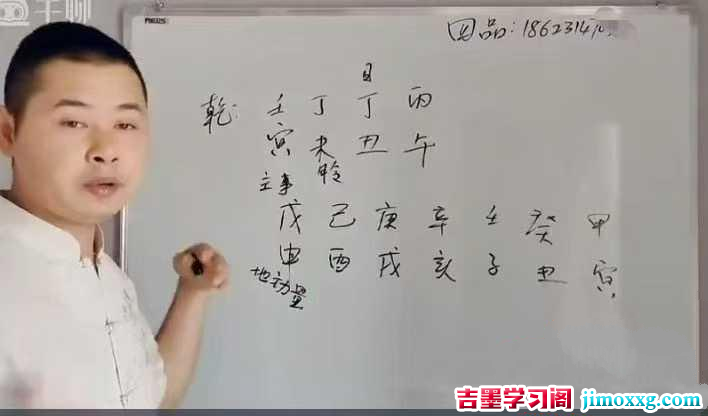 羊聊
团品:1862314
日
乾: 壬 丁 丁 丙
寅 未 丑 午
主事 
戊 己 庚 辛 壬 癸 甲
申 酉 戌 亥 子 丑 寅
地动量
吉墨学习阁 jimoxxg.com